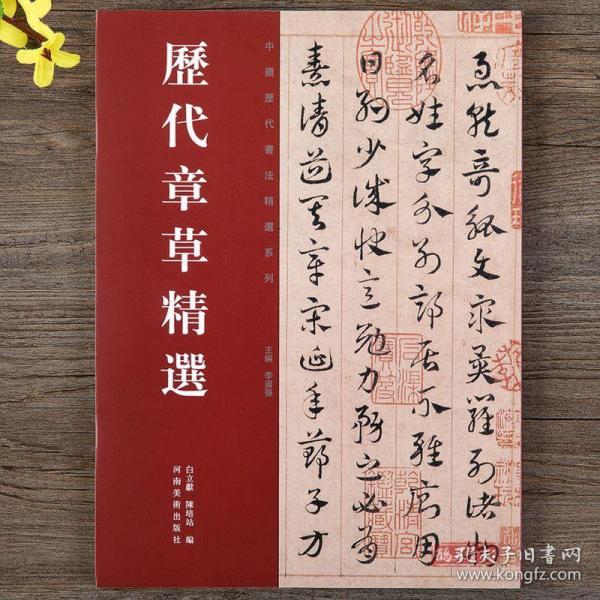 歷代章草精選
中國歷代書法精選系列
主編 李國强
白立獻 陳培站 编
河南美術出版社
急就奇觚與衆異羅列諸物
名姓字分别部居不雜廁用
日約少誠快意勉力務之必有
憙請道其章宋延年鄭子方
孔夫子旧书网
www.kongfz.com